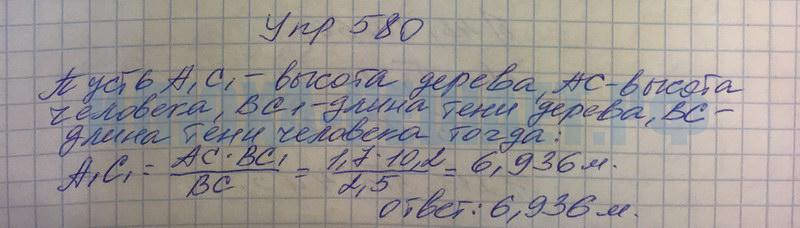 Упр 580
Пусть A₁C₁ - высота дерева, AC - высота
человека, BC₁ - длина тени дерева, BC -
длина тени человека тогда:
A₁C₁ = AC · BC₁ / BC = 1,7 · 10,2 / 2,5 = 6,936 м.
ответ: 6,936 м.